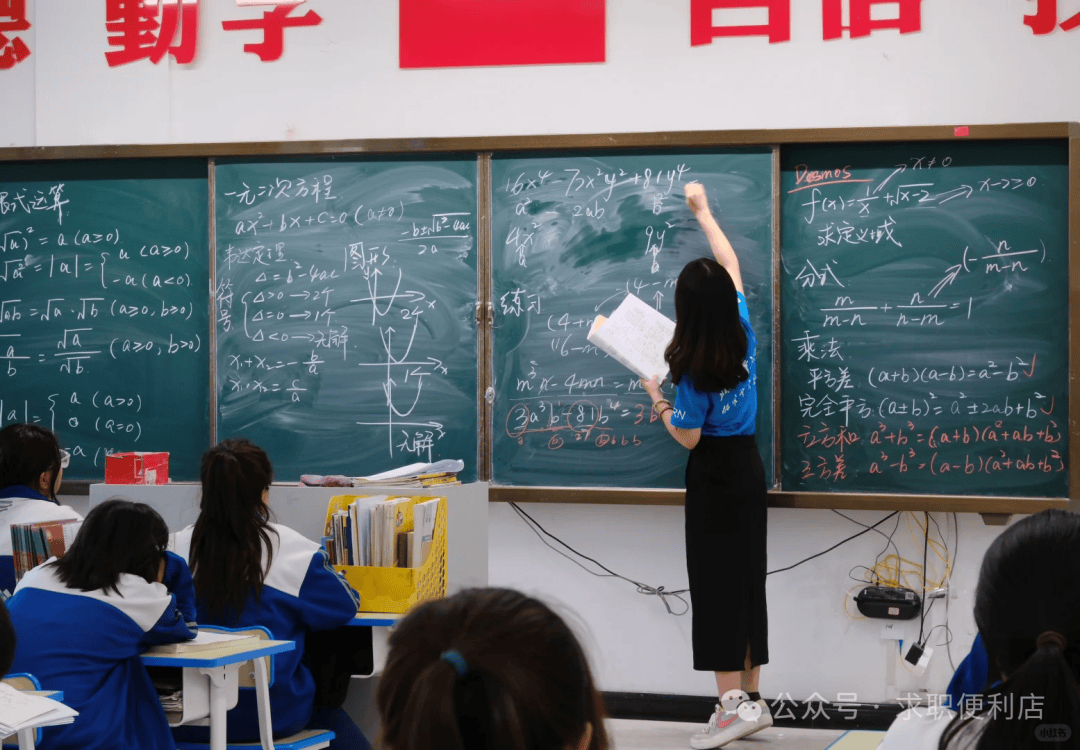 勤学
根式运算
√a² = a (a≥0)
√a² = |a| = { a (a≥0)
-a (a<0)
√ab = √a · √b (a≥0, b≥0)
√a/b = √a/√b (a≥0, b>0)
|a| = { a (a>0)
0 (a=0)
一元二次方程
ax² + bx + c = 0 (a≠0)
韦达定理
图形
-b±√b²-4ac / 2a
符号
Δ = b² - 4ac
Δ>0 → 2个
Δ=0 → 1个
Δ<0 → 无解
x₁+x₂ = -b/a
x₁·x₂ = c/a
x
x
x
无解
16x⁴ - 73x²y² + 81y⁴
a² 2ab b²
4x² 9y²
练习
(4-m
(4+
(16-m
m³n - 4mn = m
3a³b - 81b⁴ = 3b
Desmos
f(x) = 1/x + √x-2
x≠0
x-2≥0
求定义域
分式
(-n/m-n)
m/m-n + n/n-m = 1
乘法
平方差 (a+b)(a-b) = a²-b² √
完全平方 (a±b)² = a²±2ab+b² √
立方和 a³+b³ = (a+b)(a²+ab+b²)
立方差 a³-b³ = (a-b)(a²+ab+b²)
公众号 · 求职便利店
小红书